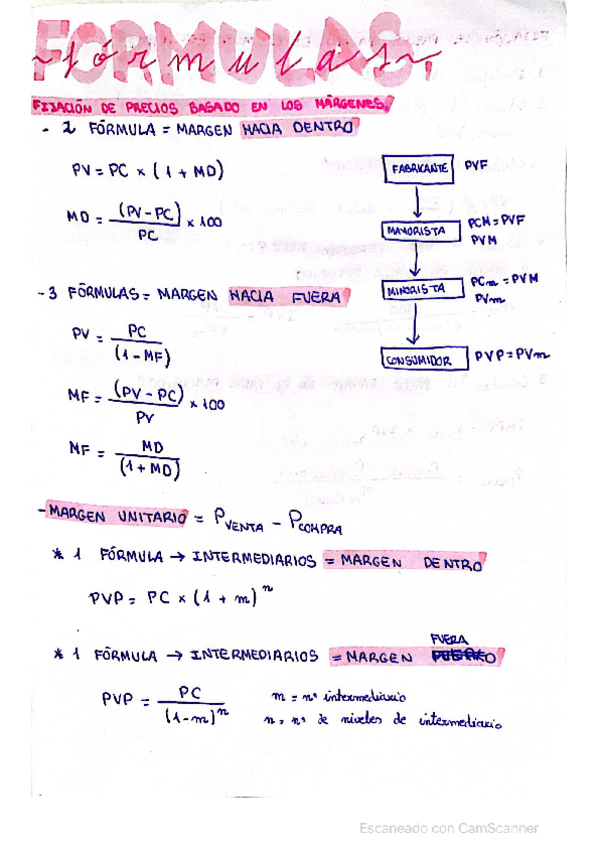 FÓRMULAS
~fórmulas~
FIJACIÓN DE PRECIOS BASADO EN LOS MÁRGENES.
- 2 FÓRMULA = MARGEN HACIA DENTRO
PV = PC x (1 + MD)
MD = (PV - PC) / PC x 100
FABRICANTE PVF
MAYORISTA PCM = PVF
PVM
MINORISTA PCm = PVM
PVm
CONSUMIDOR PVP = PVm
- 3 FÓRMULAS = MARGEN HACIA FUERA
PV = PC / (1 - MF)
MF = (PV - PC) / PV x 100
MF = MD / (1 + MD)
- MARGEN UNITARIO = PVENTA - PCOMPRA
* 1 FÓRMULA → INTERMEDIARIOS = MARGEN DENTRO
PVP = PC x (1 + m)ⁿ
FUERA
* 1 FÓRMULA → INTERMEDIARIOS = MARGEN
PVP = PC / (1-m)ⁿ
m = nº intermediario
n = nº de niveles de intermediario
Escaneado con CamScanner